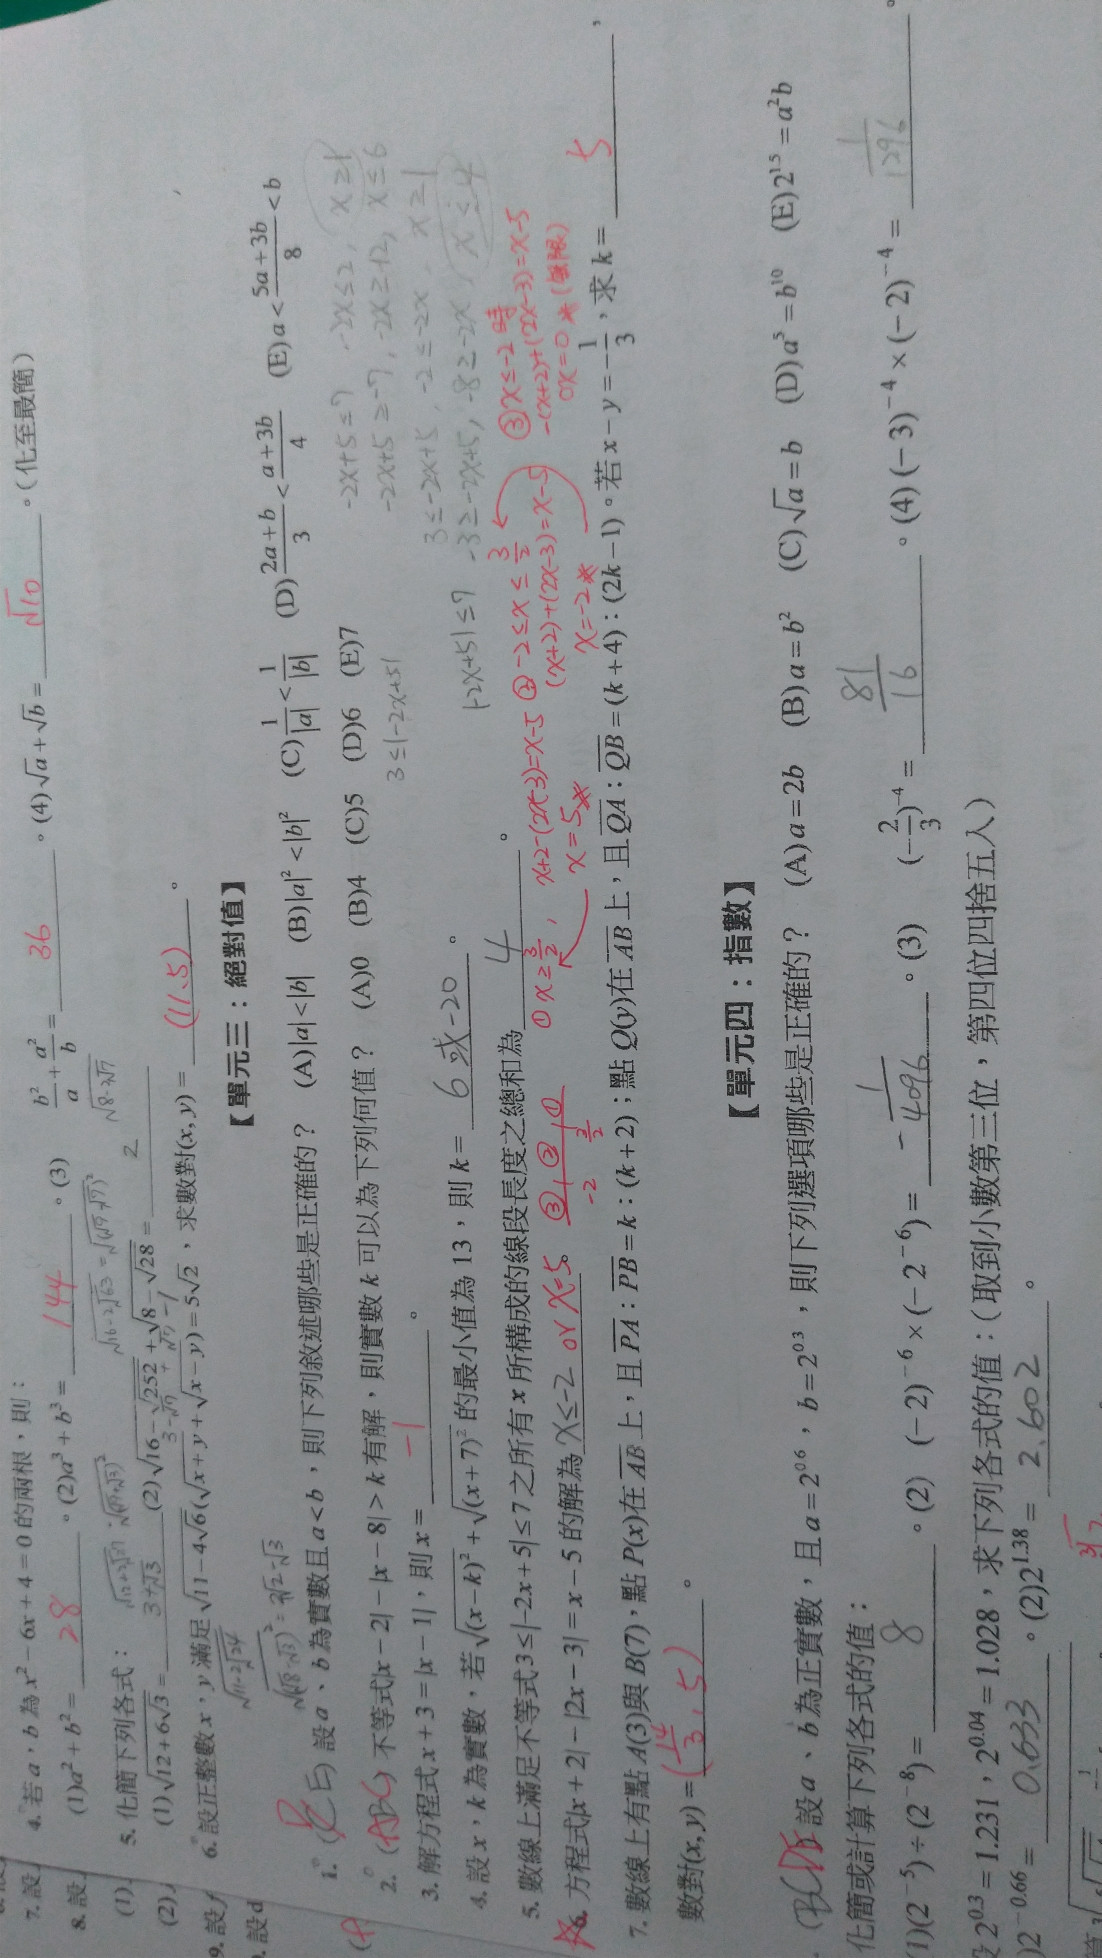 4. 若 a，b 為 x² − 6x + 4 = 0 的兩根，則：
(1)a² + b² = 28 。(2)a³ + b³ = 144 。(3) b²/a + a²/b = 36 。(4)√a + √b = √10 。(化至最簡)
5. 化簡下列各式：
(1)√(12 + 6√3) = 3+√3 (2)√(16 − √252) + √(8 − √28) = 2
6. 設正整數 x，y 滿足 √(11 − 4√6)(√(x + y) + √(x − y)) = 5√2，求數對(x, y) = (11、5) 。
【單元三：絕對值】
1. 設 a、b 為實數且 a < b，則下列敘述哪些是正確的？ (A)|a| < |b| (B)|a|² < |b|² (C) 1/|a| < 1/|b| (D) (2a + b)/3 < (a + 3b)/4 (E) a < (5a + 3b)/8 < b
-2x+5≤7, -2x≤2, x≥-1
-2x+5≥-7, -2x≥-12, x≤6
2. (ABC) 不等式|x − 2| − |x − 8| > k 有解，則實數 k 可以為下列何值？ (A)0 (B)4 (C)5 (D)6 (E)7
3≤|-2x+5|
3≤-2x+5, -2≤-2x, x≥1
3. 解方程式 x + 3 = |x − 1|，則 x = -1 。
-3≥-2x+5, -8≥-2x, x≤4
4. 設 x，k 為實數，若 √(x − k)² + √(x + 7)² 的最小值為 13，則 k = 6 或 -20 。
|-2x+5|≤7
5. 數線上滿足不等式 3 ≤ |−2x + 5| ≤ 7 之所有 x 所構成的線段長度之總和為 4 。
① x≥3/2, x+2-(2x-3)=x-5
x=5
② -2≤x≤3/2
(x+2)+(2x-3)=x-5
x=-2
③ x≤-2時
-(x+2)+(2x-3)=x-5
0x=0 (無限)
6. 方程式|x + 2| − |2x − 3| = x − 5 的解為 x≤-2 or x=5。
7. 數線上有點 A(3)與 B(7)，點 P(x)在 AB 上，且 PA : PB = k : (k + 2)；點 Q(y)在 AB 上，且 QA : QB = (k + 4) : (2k − 1)。若 x − y = −1/3，求 k = 5 ，
數對(x, y) = (14/3, 5) 。
【單元四：指數】
設 a、b 為正實數，且 a = 2^0.6，b = 2^0.3，則下列選項哪些是正確的？ (A) a = 2b (B) a = b² (C)√a = b (D) a⁵ = b¹⁰ (E) 2^1.5 = a²b
化簡或計算下列各式的值：
(1)(2⁻⁵) ÷ (2⁻⁸) = 8 。(2) (−2)⁻⁶ × (−2⁻⁶) = -1/4096 。(3) (−2/3)⁻⁴ = 81/16 。(4) (−3)⁻⁴ × (−2)⁻⁴ = 1/1296 。
2^0.3 = 1.231，2^0.04 = 1.028，求下列各式的值：(取到小數第三位，第四位四捨五入)
2^−0.66 = 0.633 。(2)2^1.38 = 2.602 。
7. 設
8. 設
(1)
(2)
9. 設
設 d